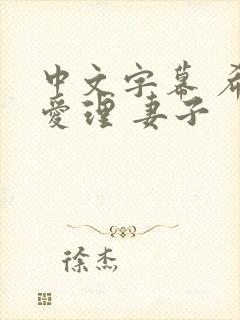 中文字幕 希
愛理 妻子
徐杰